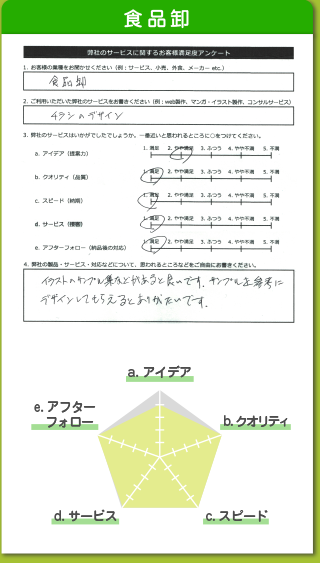 食品卸
弊社のサービスに関するお客様満足度アンケート
1. お客様の業種をお聞かせください（例：サービス、小売、外食、メーカー etc.）
食品卸
2. ご利用いただいた弊社のサービスをお書きください（例：web製作、マンガ・イラスト製作、コンサルサービス）
チラシのデザイン
3. 弊社のサービスはいかがでしたでしょうか。一番近いと思われるところに○をつけてください。
a. アイデア（提案力） 1. 満足 2. やや満足 3. ふつう 4. やや不満 5. 不満
b. クオリティ（品質） 1. 満足 2. やや満足 3. ふつう 4. やや不満 5. 不満
c. スピード（納期） 1. 満足 2. やや満足 3. ふつう 4. やや不満 5. 不満
d. サービス（接客） 1. 満足 2. やや満足 3. ふつう 4. やや不満 5. 不満
e. アフターフォロー（納品後の対応） 1. 満足 2. やや満足 3. ふつう 4. やや不満 5. 不満
4. 弊社の製品・サービス・対応などについて、思われるところなどをご自由にお書きください。
イラストのサンプル集などがあると良いです。サンプルを参考に
デザインしてもらえるとありがたいです。
a. アイデア
e. アフター
フォロー
b. クオリティ
d. サービス
c. スピード